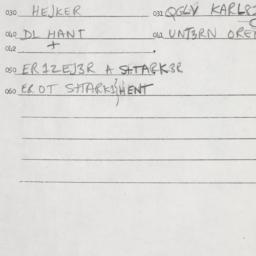 030 HEJKER 031 QGLV KARLS
040 DL HANT 041 UNT3RN OREN
042
050 ER1ZEJ3R A SHTARK3R
060 ER OT SHTARK HENT